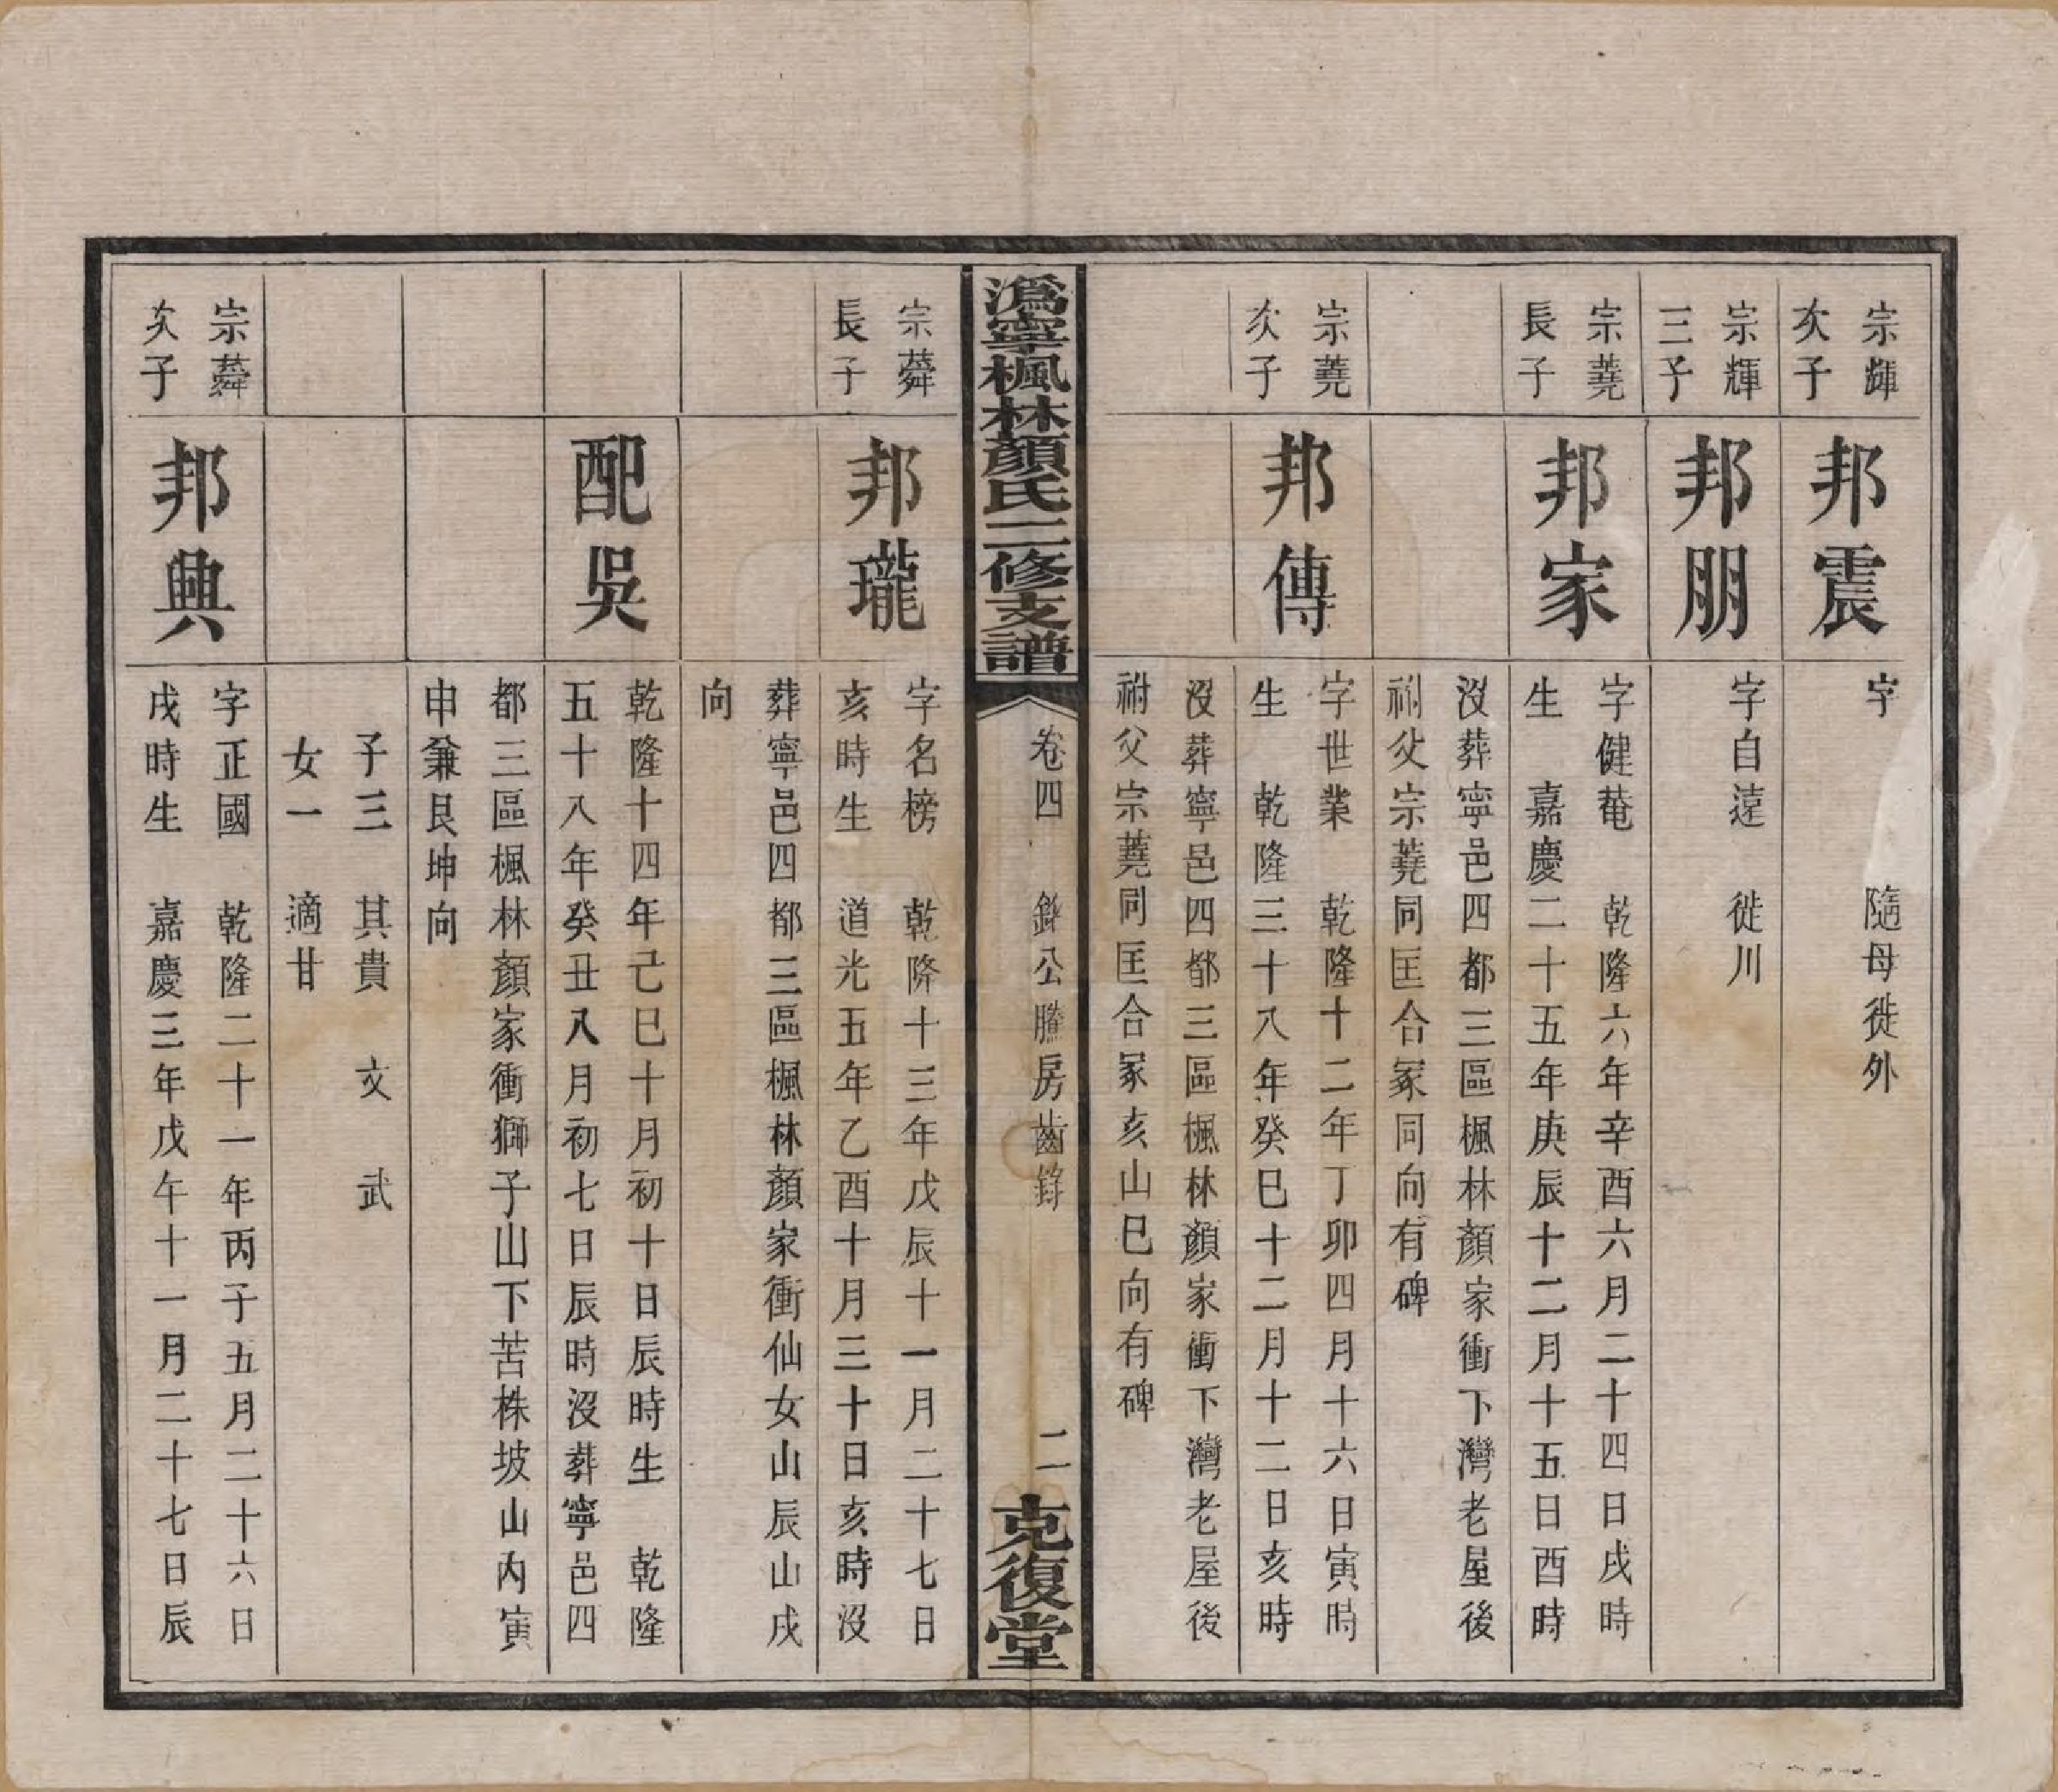 宗輝
次子
邦震
字　　　隨母徙外
宗輝
三子
邦朋
字自遠　徙川
宗蕘
長子
邦家
字健菴　乾隆六年辛酉六月二十四日戌時
生　嘉慶二十五年庚辰十二月十五日酉時
沒葬寧邑四都三區楓林顏家衝下灣老屋後
祔父宗蕘同匡合冢同向有碑
宗蕘
次子
邦傳
字世業　乾隆十二年丁卯四月十六日寅時
生　乾隆三十八年癸巳十二月十二日亥時
沒葬寧邑四都三區楓林顏家衝下灣老屋後
祔父宗蕘同匡合冢亥山巳向有碑
溈寧楓林顏氏三修支譜
卷四　公騰房齒錄　二
克復堂
宗蕣
長子
邦瓏
字名榜　乾隆十三年戊辰十一月二十七日
亥時生　道光五年乙酉十月三十日亥時沒
葬寧邑四都三區楓林顏家衝仙女山辰山戌
向
配吳
乾隆十四年己巳十月初十日辰時生　乾隆
五十八年癸丑八月初七日辰時沒葬寧邑四
都三區楓林顏家衝獅子山下苦株坡山內寅
申兼艮坤向
子三　其貴　文　武
女一　適甘
宗蕣
次子
邦興
字正國　乾隆二十一年丙子五月二十六日
戌時生　嘉慶三年戊午十一月二十七日辰